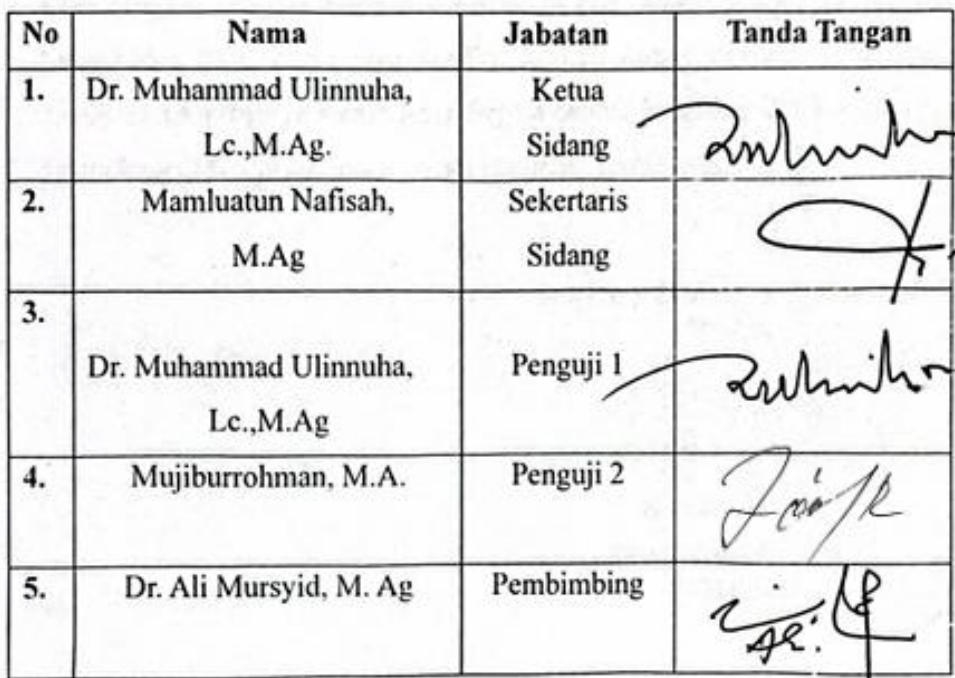 No Nama Jabatan Tanda Tangan
1. Dr. Muhammad Ulinnuha, Ketua
Lc.,M.Ag. Sidang
2. Mamluatun Nafisah, Sekertaris
M.Ag Sidang
3.
Dr. Muhammad Ulinnuha, Penguji 1
Lc.,M.Ag
4. Mujiburrohman, M.A. Penguji 2
5. Dr. Ali Mursyid, M. Ag Pembimbing